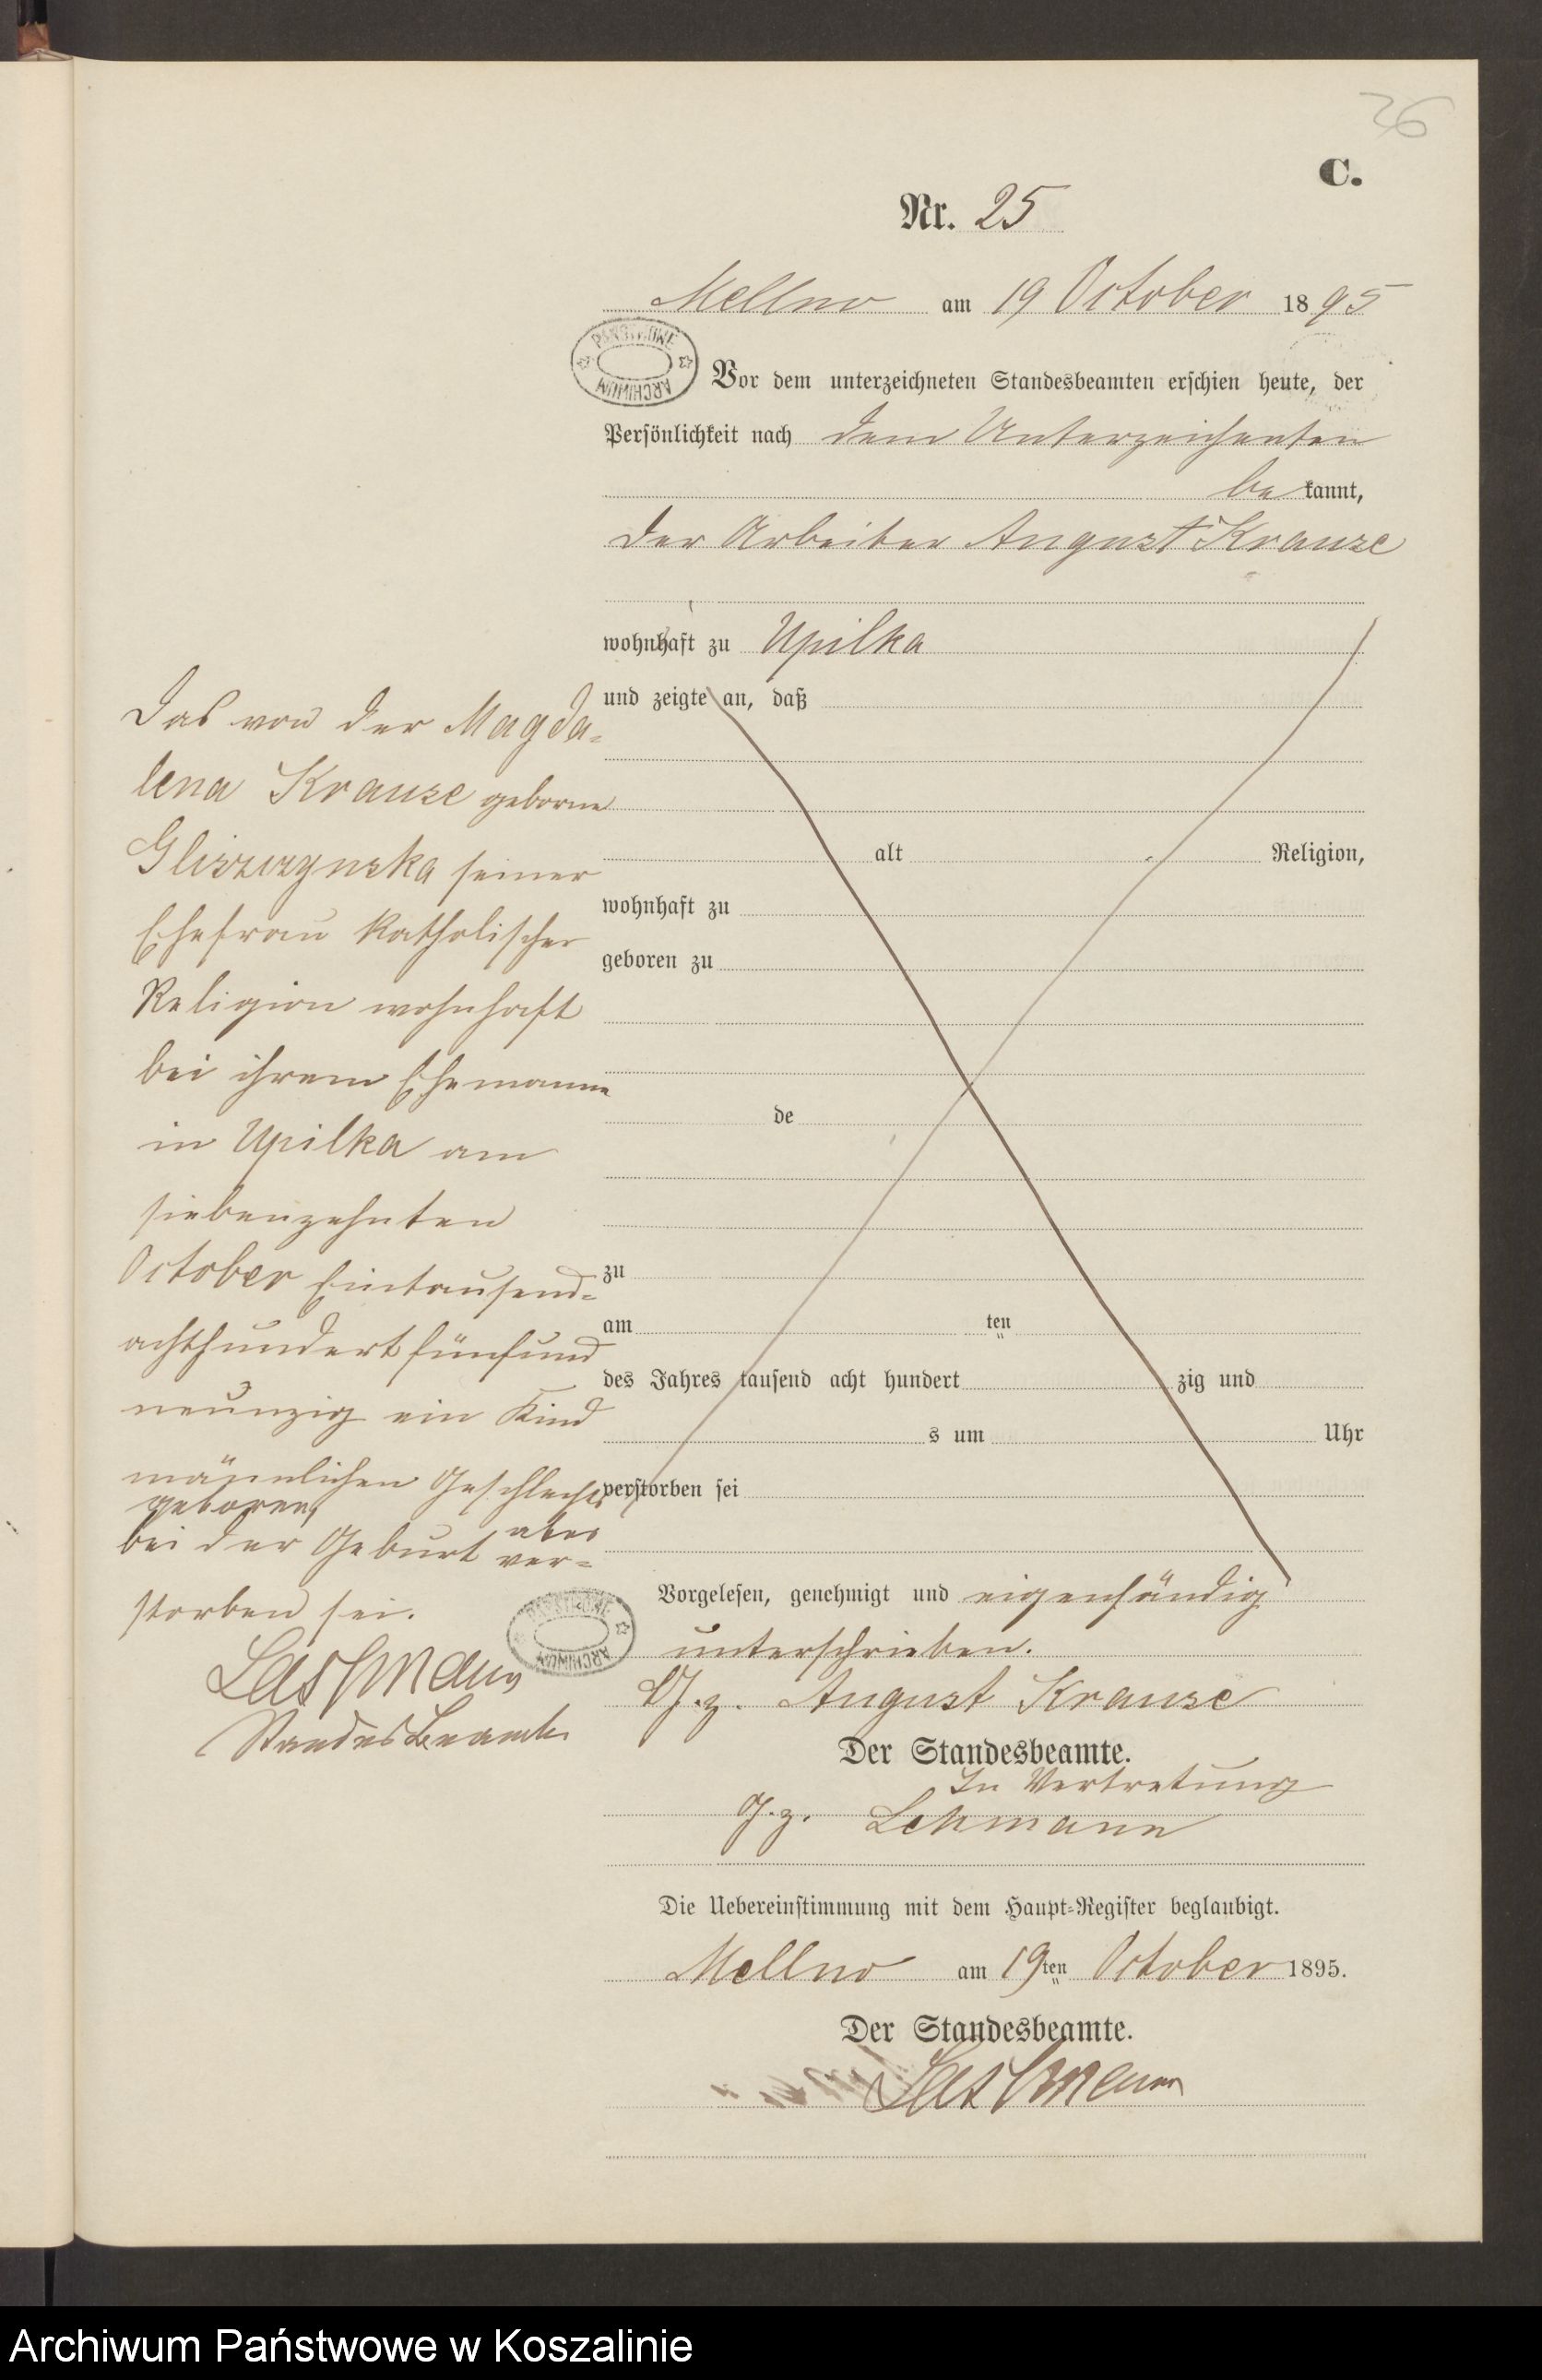 36
C.
Nr. 25
Mellno am 19 October 1895
PAŃSTWOWE ARCHIWUM
Vor dem unterzeichneten Standesbeamten erschien heute, der
Persönlichkeit nach dem Unterzeichneten
be kannt,
der Arbeiter August Krause
wohnhaft zu Upilka
und zeigte an, daß
alt Religion,
wohnhaft zu
geboren zu
de
zu
am ten
des Jahres tausend acht hundert zig und
s um Uhr
verstorben sei
Das von der Magda-
lena Krause geborne
Gliszczynska seiner
Ehefrau katholischer
Religion wohnhaft
bei ihrem Ehemanne
in Upilka am
siebenzehnten
October Eintausend-
achthundert fünfund
neunzig ein Kind
männlichen Geschlechts
geboren,
bei der Geburt aber ver-
storben sei.
Lehmann
Standesbeamte
PAŃSTWOWE ARCHIWUM
Vorgelesen, genehmigt und eigenhändig
unterschrieben.
G.z. August Krause
Der Standesbeamte.
In Vertretung
g.z. Lehmann
Die Uebereinstimmung mit dem Haupt-Register beglaubigt.
Mellno am 19ten October 1895.
Der Standesbeamte.
Lehmann
Archiwum Państwowe w Koszalinie